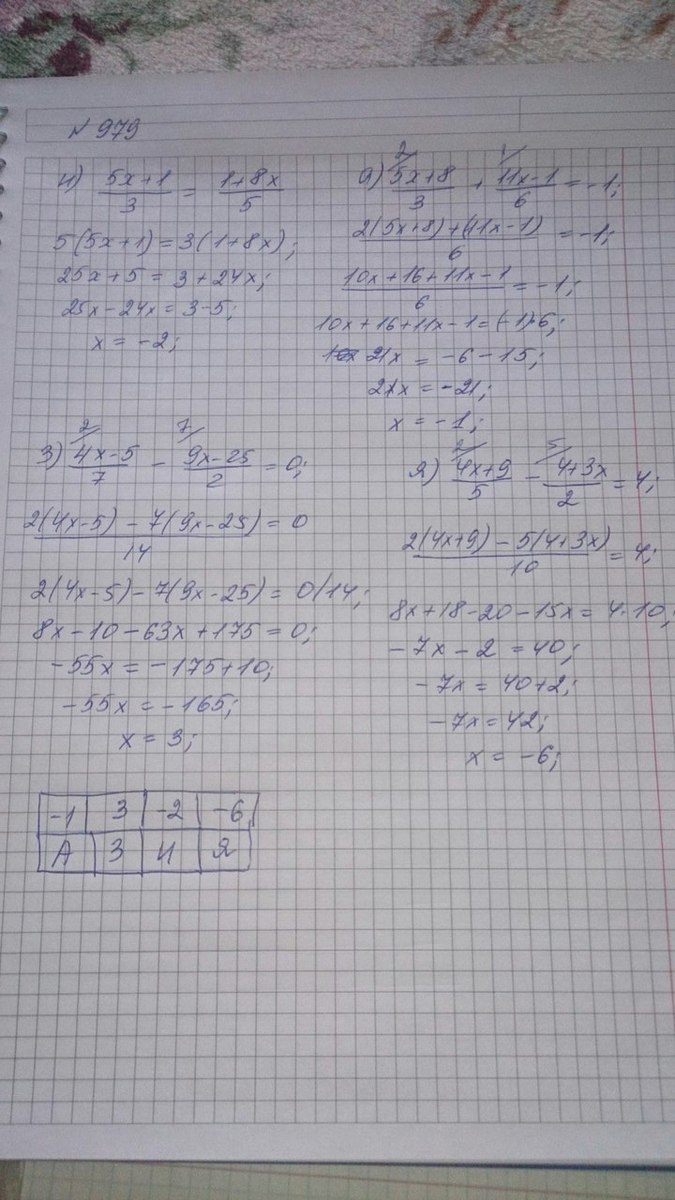 № 979
и) (5x+1)/3 = (1+8x)/5
5(5x+1) = 3(1+8x);
25x+5 = 3+24x;
25x-24x = 3-5;
x = -2;
а) ²⁄(5x+8)/3 + ¹⁄(11x-1)/6 = -1;
(2(5x+8)+(11x-1))/6 = -1;
(10x+16+11x-1)/6 = -1;
10x+16+11x-1 = (-1)·6;
21x = -6-15;
21x = -21;
x = -1;
з) ²⁄(4x-5)/7 - ⁷⁄(9x-25)/2 = 0;
(2(4x-5)-7(9x-25))/14 = 0
2(4x-5)-7(9x-25) = 0/14;
8x-10-63x+175 = 0;
-55x = -175+10;
-55x = -165;
x = 3;
я) ²⁄(4x+9)/5 - ⁵⁄(4+3x)/2 = 4;
(2(4x+9)-5(4+3x))/10 = 4;
8x+18-20-15x = 4·10;
-7x-2 = 40;
-7x = 40+2;
-7x = 42;
x = -6;
-1 3 -2 -6
А З И Я